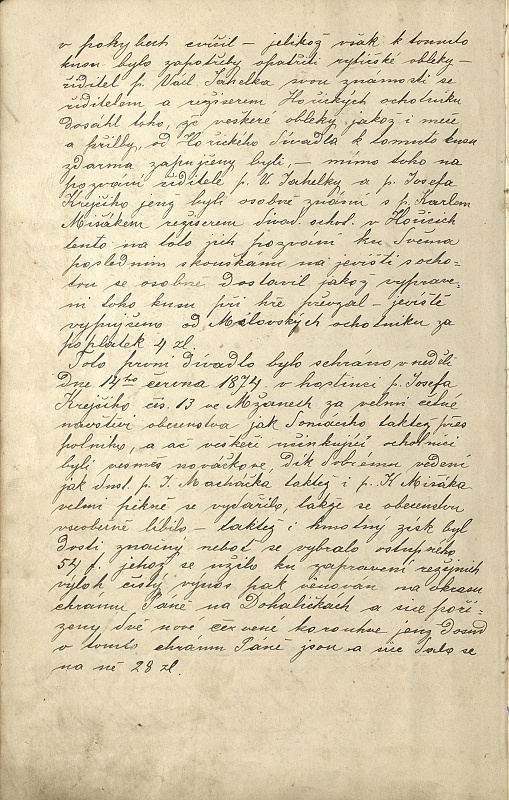 v pohybech cvičil – jelikož však k tomuto
kusu bylo zapotřeby opatřiti rytířské obleky –
ředitel p. Václ. Jahelka svou známostí se
ředitelem a režiserem Hořických ochotníků
dosáhl toho, že veskeré obleky jakož i meče
a přilby, od Hořického Divadla k tomuto kusu
zdarma zapujčeny byli, – mimo toho na
pozvání ředitele p. V. Jahelky a p. Josefa
Krejčího jenž byli osobně známi s p. Karlem
Mišákem režiserem divad. ochot. v Hořicích
tento na toto jich pozvání ku dvěma
posledním skouškám na jeviště s ocho-
tou se osobně dostavil jakož vyprave-
ní toho kusu při hře převzal – jeviště
vypujčeno od Milovských ochotníku za
poplátek 4 zl.
Toto první divadlo bylo sehráno v neděli
dne 14ho června 1874 v hostinci p. Josefa
Krejčího čís. 13 ve Mžanech za velmi četné
návštěvi obecenstva jak domácího taktéž přes
polního, a ač veskeří učinkující ochotníci
byli vesměs nováčkové, dík dobrému vedení
jak dost. p. J. Macháčka taktéž i p. K Mišáka
velmi pěkně se vydařilo, takže se obecenstvu
vseobecně líbilo – taktéž i hmotný zisk byl
dosti značný neboť se vybralo vstupného
54 f. jehož se užilo ku zapravení režijních
výloh čistý výnos pak věnován na okrasu
chrámu Páně na Dohaličkách a sice poří-
zeny dvě nové červené korouhve jenž dosud
v tomto chrámu Páně jsou a sice dalo se
na ně 28 zl.